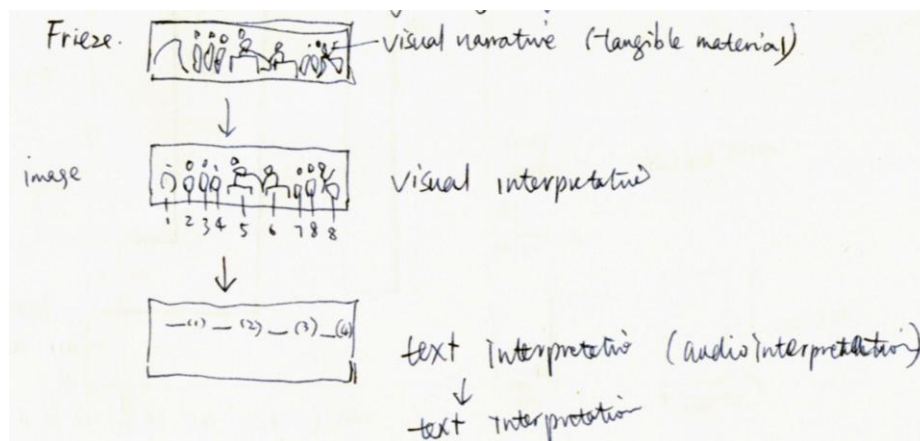 Frieze. visual narrative (tangible material)
image visual interpretative
1 2 3 4 5 6 7 8 8
—(1) — (2) — (3) — (4)
text interpretatio (audio interpretation)
text interpretation